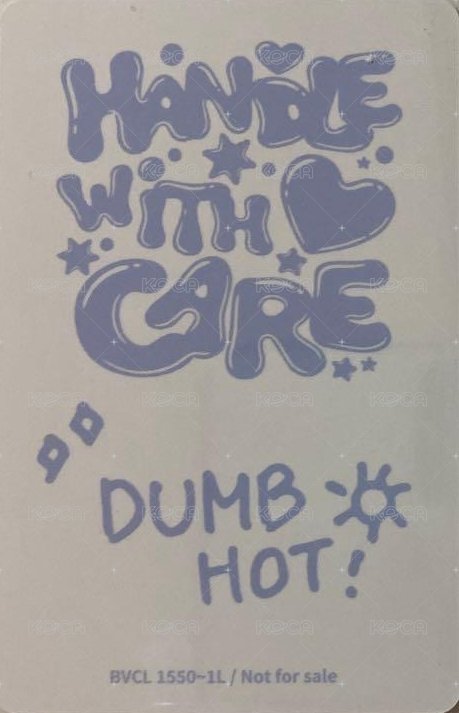 HANDLE
WITH
CARE
"DUMB
HOT!
BVCL 1550~1L / Not for sale